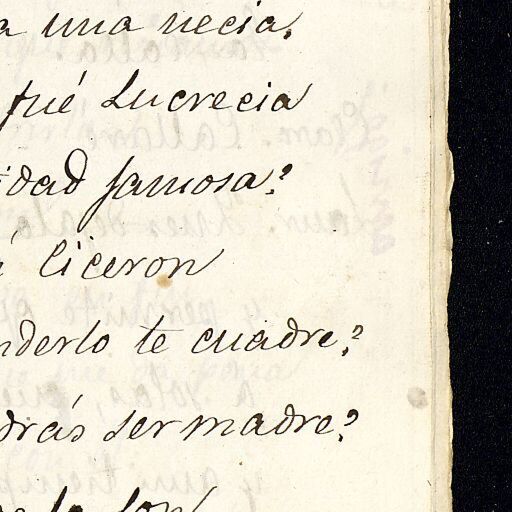 a una necia.
fué Lucrecia
idad famosa?
Ciceron
nderlo te cuadre?
drás ser madre?
son